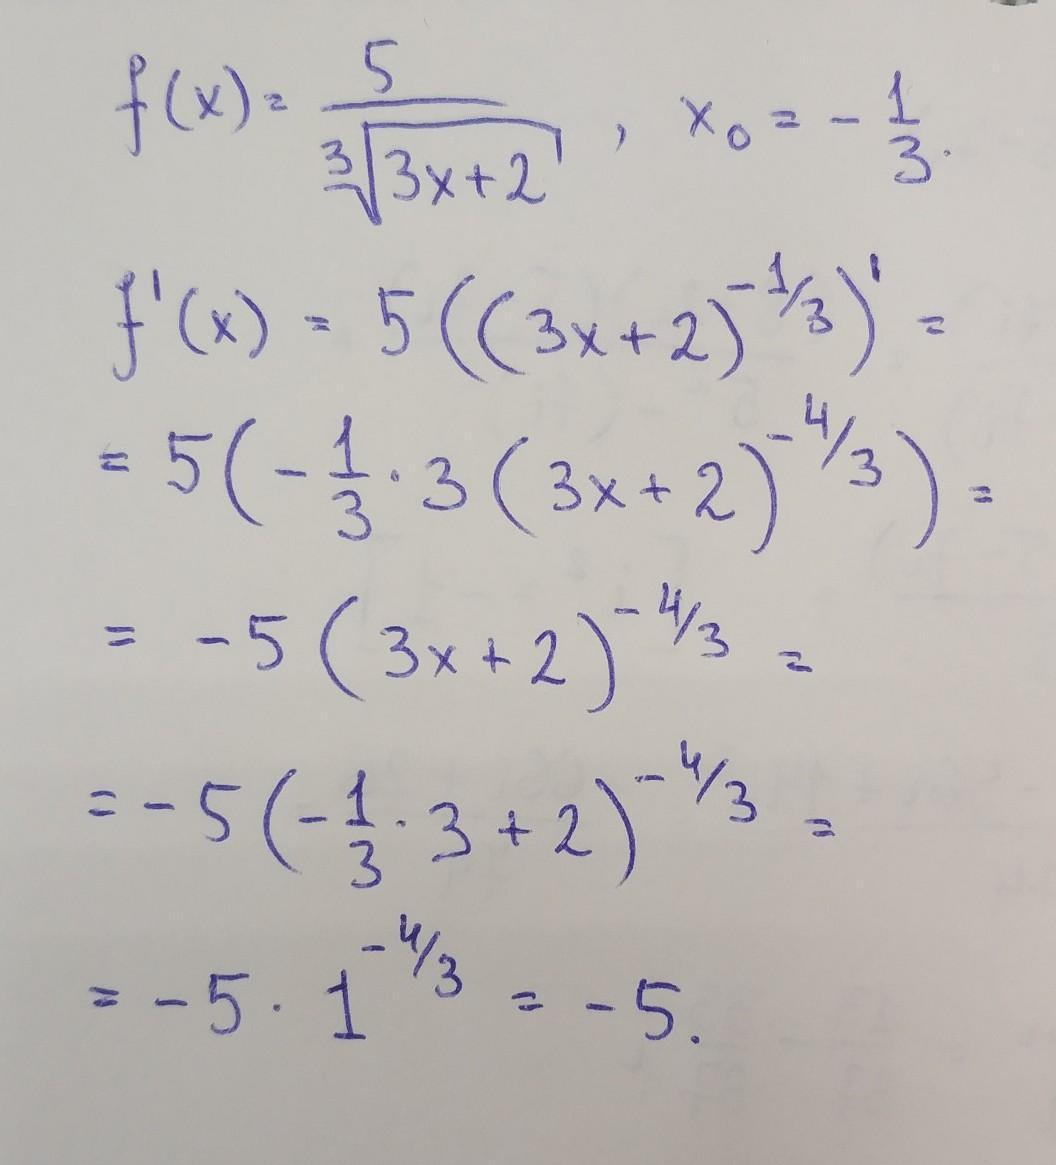 f(x) = 5/∛(3x+2) , x₀ = - 1/3.
f'(x) = 5((3x+2)^(-1/3))' =
= 5(- 1/3 · 3(3x+2)^(-4/3)) =
= -5(3x+2)^(-4/3) =
= -5(- 1/3 · 3+2)^(-4/3) =
= -5 · 1^(-4/3) = -5.